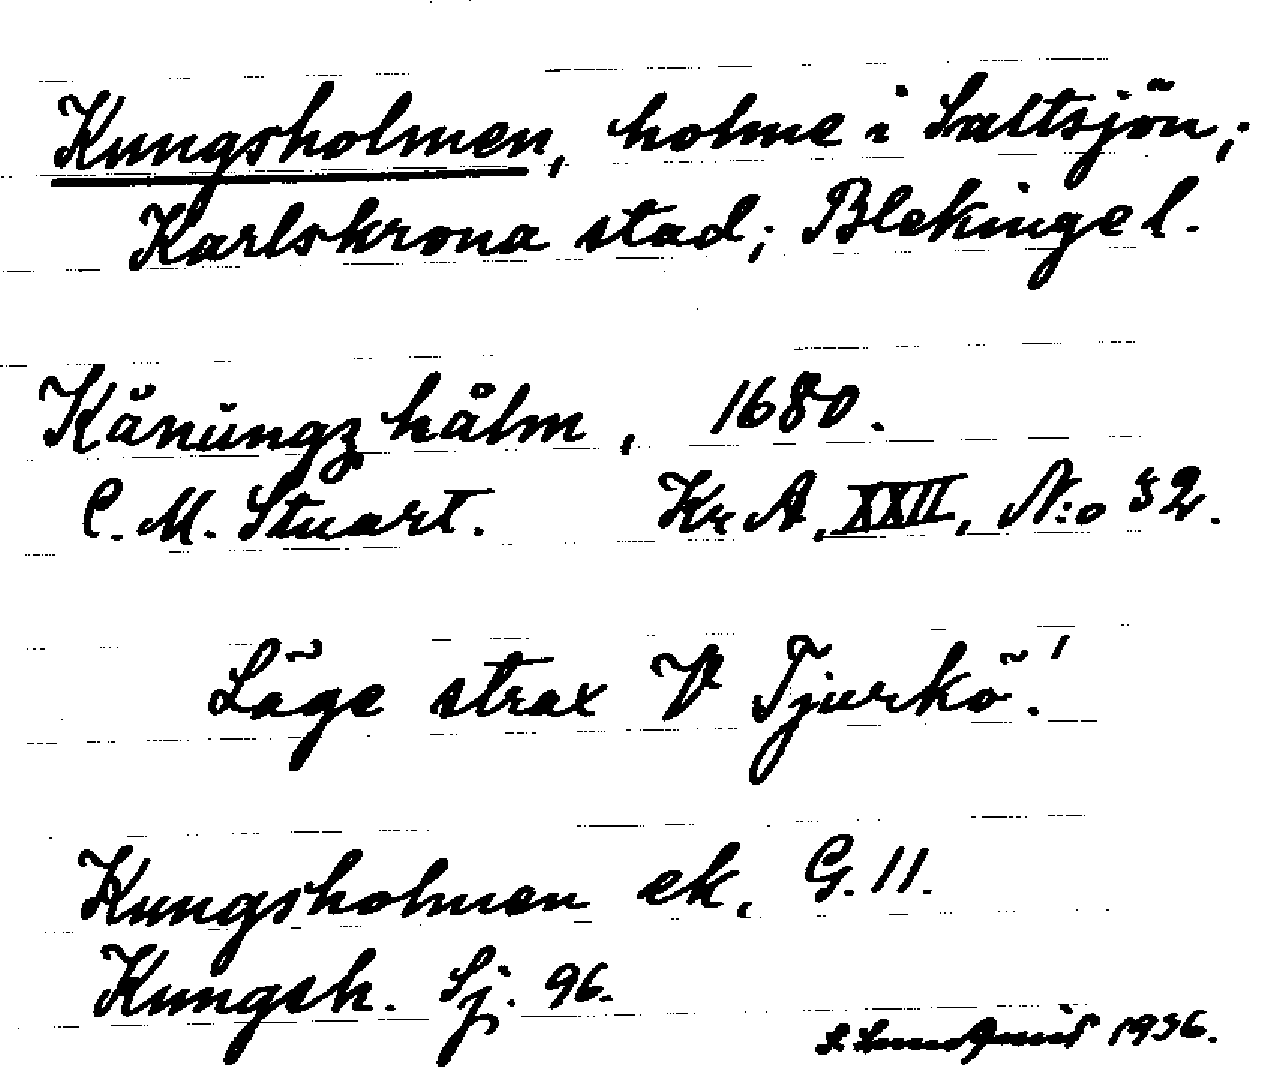 Kungsholmen, holme i Saltsjön;
Karlskrona stad; Blekinge l.
Kånŭngz hålm, 1680.
C. M. Stuart. Kr A, XXII, N:o 32.
Läge strax V Tjurkö!
Kungsholmen ek, G. 11.
Kungsh. Sj. 96.
1936.